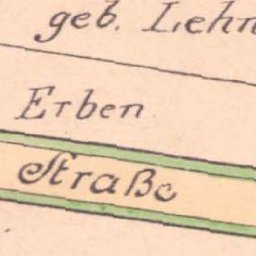 geb. Lehn
Erben
Straße